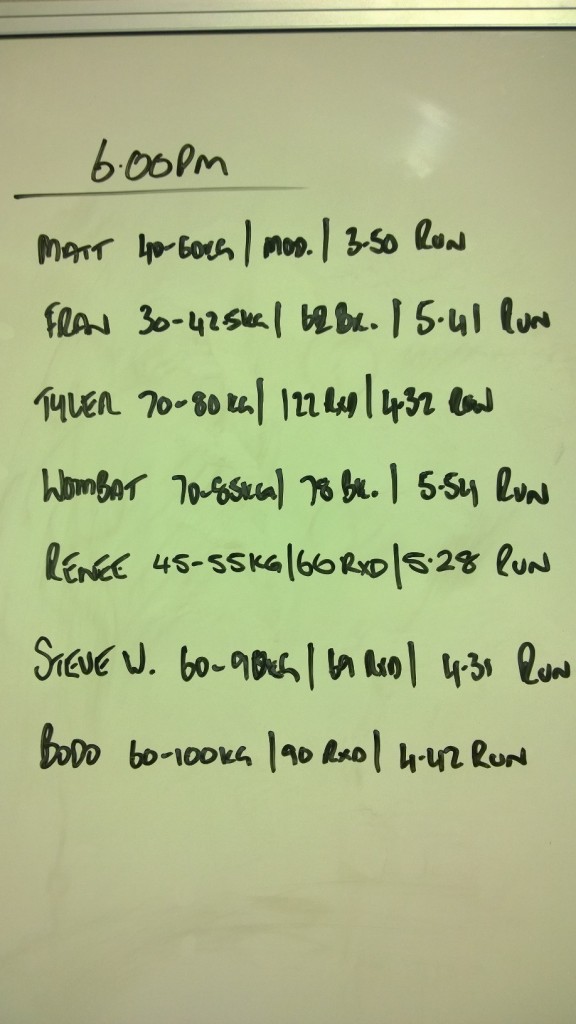 6.00PM
MATT 40-60KG | MOD. | 3.50 RUN
FRAN 30-42.5KG | 62 BK. | 5.41 RUN
TYLER 70-80KG | 122 RXD | 4.32 RUN
WOMBAT 70-85KG | 78 BK. | 5.54 RUN
RENEE 45-55KG | 66 RXD | 5.28 RUN
STEVE W. 60-90KG | 69 RXD | 4.31 RUN
BODO 60-100KG | 90 RXD | 4.42 RUN